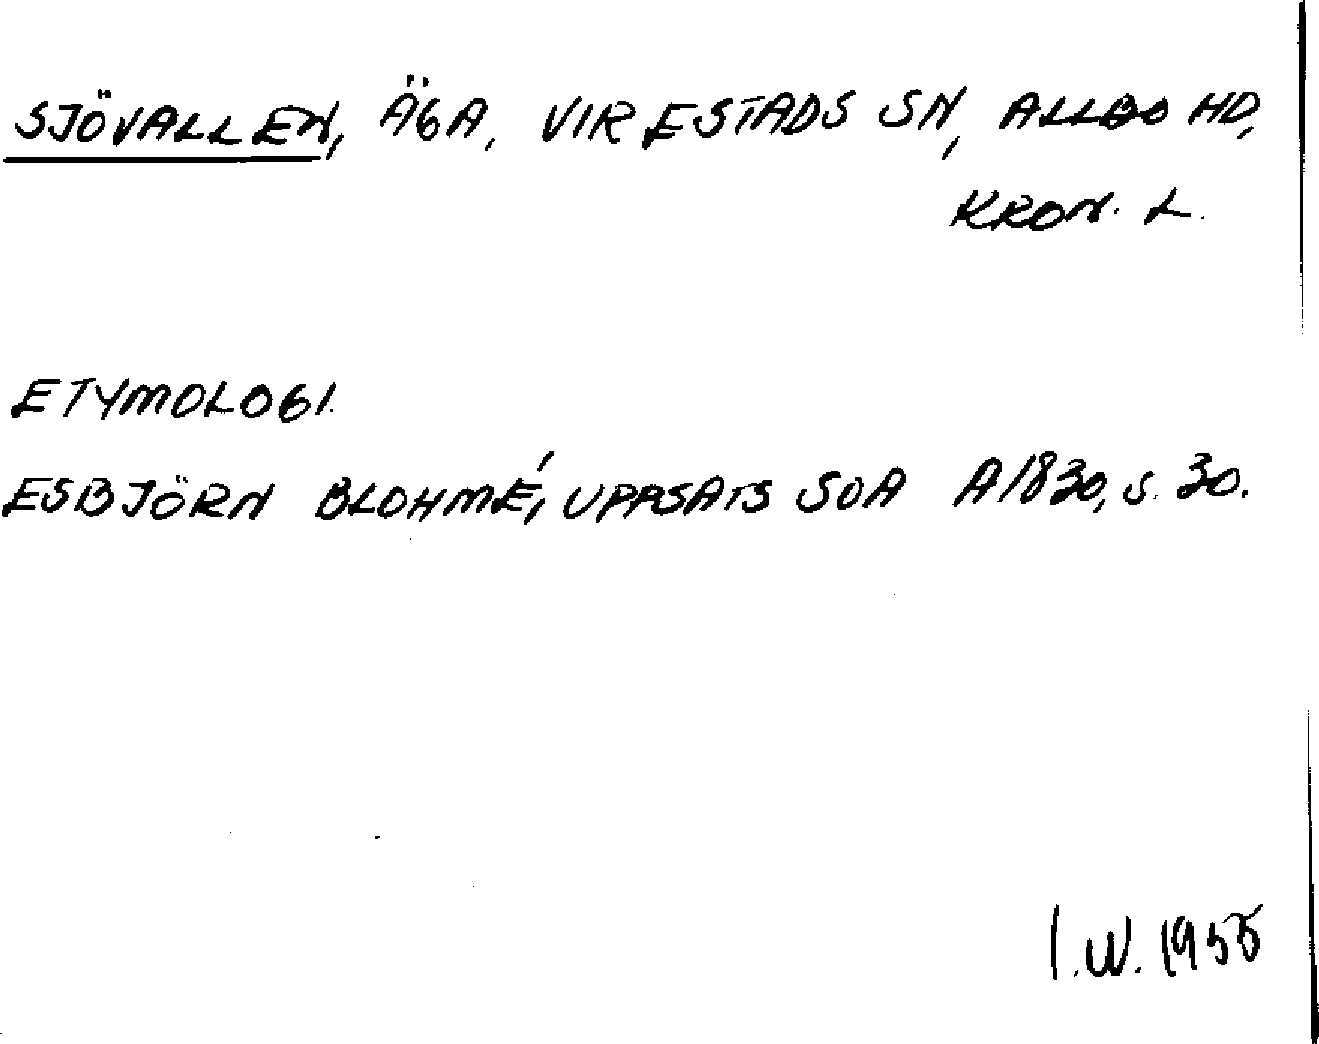 SJÖVALLEN, ÄGA, VIRESTADS SN, ALLBO HD,
KRON. L.
ETYMOLOGI.
ESBJÖRN BLOHMÉ, UPPSATS SOA A1830, S. 30.
I.W. 1955